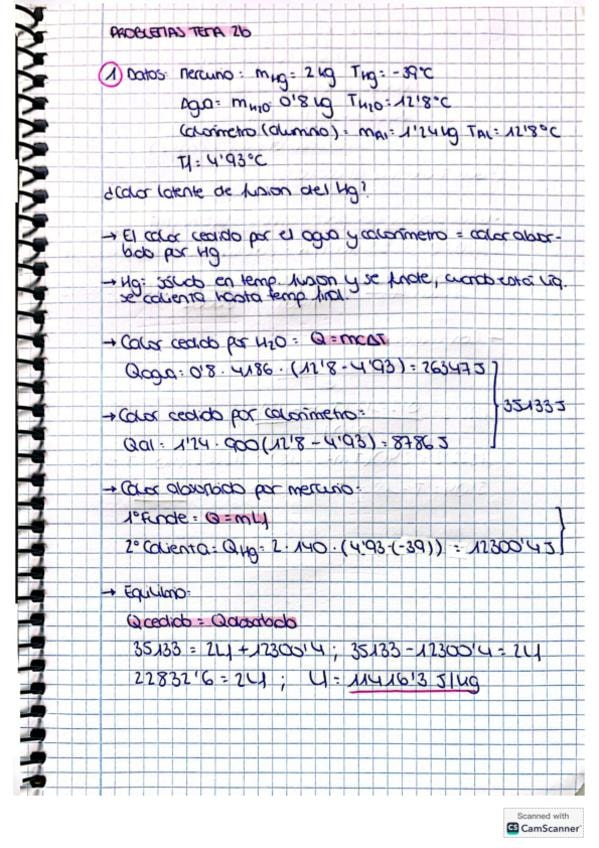 PROBLEMAS TEMA 2b
1 Datos: Mercurio: mHg= 2 kg THg= -39°C
Agua= mH2O: 0'8 kg TH2O: 12'8°C
Calorímetro (aluminio)= mAl= 1'24 kg TAl= 12'8°C
Tf= 4'93°C
¿Calor latente de fusion del Hg?
→ El calor cedido por el agua y calorímetro = calor absor-
bido por Hg.
→ Hg: sólido en temp. fusion y se funde, cuando está líq.
se calienta hasta temp final.
→ Calor cedido por H2O= Q=mCΔT
Qagua= 0'8 · 4186 · (12'8 - 4'93) = 26347 J
35133 J
→ Calor cedido por calorímetro=
Qal= 1'24 · 900 (12'8 - 4'93) = 8786 J
→ Calor absorbido por mercurio:
1º Funde= Q=mLf
2º Calienta= QHg= 2 · 140 · (4'93-(-39)) = 12300'4 J
→ Equilibrio:
Qcedido = Qabsorbido
35133 = 2Lf + 12300'4 ; 35133 - 12300'4 = 2Lf
22832'6 = 2Lf ; Lf = 11416'3 J/kg
Scanned with
CS CamScanner